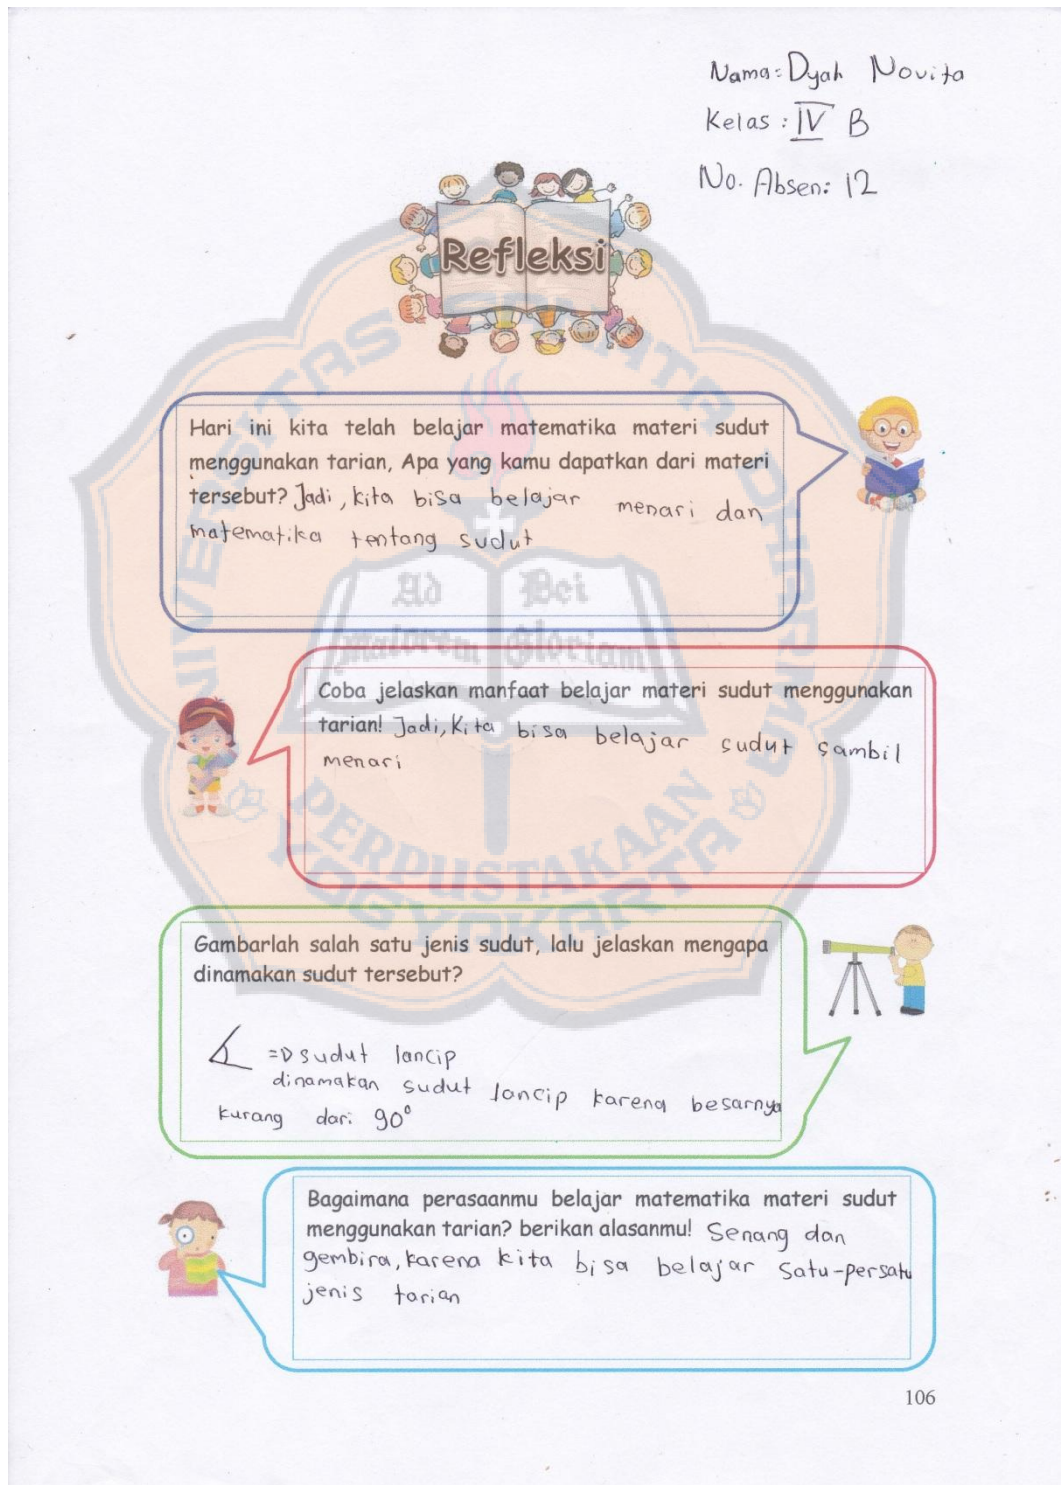 Nama: Dyah Novita
Kelas : IV B
No. Absen: 12
Refleksi
Hari ini kita telah belajar matematika materi sudut
menggunakan tarian, Apa yang kamu dapatkan dari materi
tersebut? Jadi, kita bisa belajar menari dan
matematika tentang sudut
Coba jelaskan manfaat belajar materi sudut menggunakan
tarian! Jadi, Kita bisa belajar sudut sambil
menari
Gambarlah salah satu jenis sudut, lalu jelaskan mengapa
dinamakan sudut tersebut?
=D sudut lancip
dinamakan sudut lancip karena besarnya
kurang dari 90°
Bagaimana perasaanmu belajar matematika materi sudut
menggunakan tarian? berikan alasanmu! Senang dan
gembira, karena kita bisa belajar satu-persatu
jenis tarian
106
UNIVERSITAS SANATA DHARMA
Ad Dei
Maiorem Gloriam
PERPUSTAKAAN
YOGYAKARTA